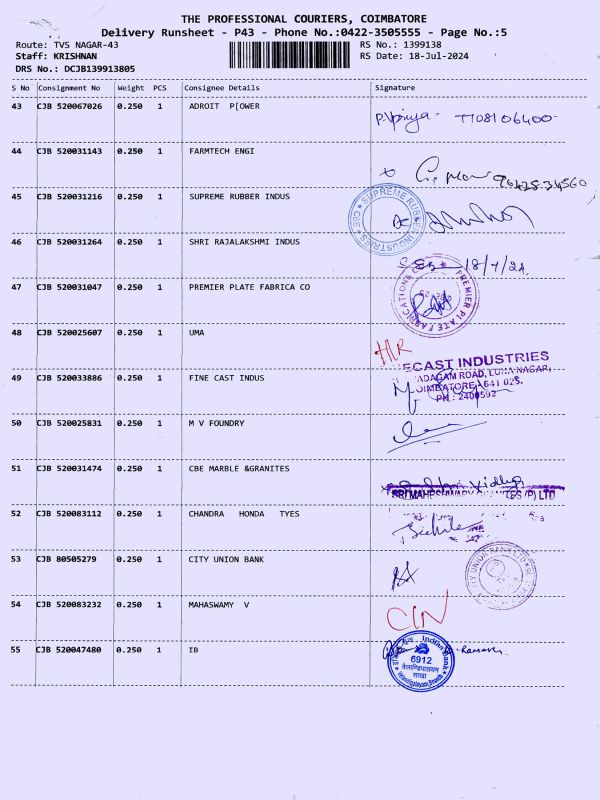 THE PROFESSIONAL COURIERS, COIMBATORE
Delivery Runsheet - P43 - Phone No.:0422-3505555 - Page No.:5
Route: TVS NAGAR-43 RS No.: 1399138
Staff: KRISHNAN RS Date: 18-Jul-2024
DRS No.: DCJB139913805
S No Consignment No Weight PCS Consignee Details Signature
43 CJB 520067026 0.250 1 ADROIT P[OWER
P.
44 CJB 520031143 0.250 1 FARMTECH ENGI
45 CJB 520031216 0.250 1 SUPREME RUBBER INDUS
SUPREME RUBBER INDUSTRIES CBE
46 CJB 520031264 0.250 1 SHRI RAJALAKSHMI INDUS
18/7/24
47 CJB 520031047 0.250 1 PREMIER PLATE FABRICA CO
PREMIER PLATE FABRICATIONS
48 CJB 520025607 0.250 1 UMA
HR
ECAST INDUSTRIES
ADAGAM ROAD, LUNA NAGAR,
COIMBATORE 641 025.
PH : 2400592
49 CJB 520033886 0.250 1 FINE CAST INDUS
50 CJB 520025831 0.250 1 M V FOUNDRY
51 CJB 520031474 0.250 1 CBE MARBLE &GRANITES
Vidhya
SRI MAHESHWARY GRANITES (P) LTD
52 CJB 520083112 0.250 1 CHANDRA HONDA TYES
53 CJB 80505279 0.250 1 CITY UNION BANK
CITY UNION BANK LTD
54 CJB 520083232 0.250 1 MAHASWAMY V
CIN
55 CJB 520047480 0.250 1 IB
Indian Bank
6912
शाखा